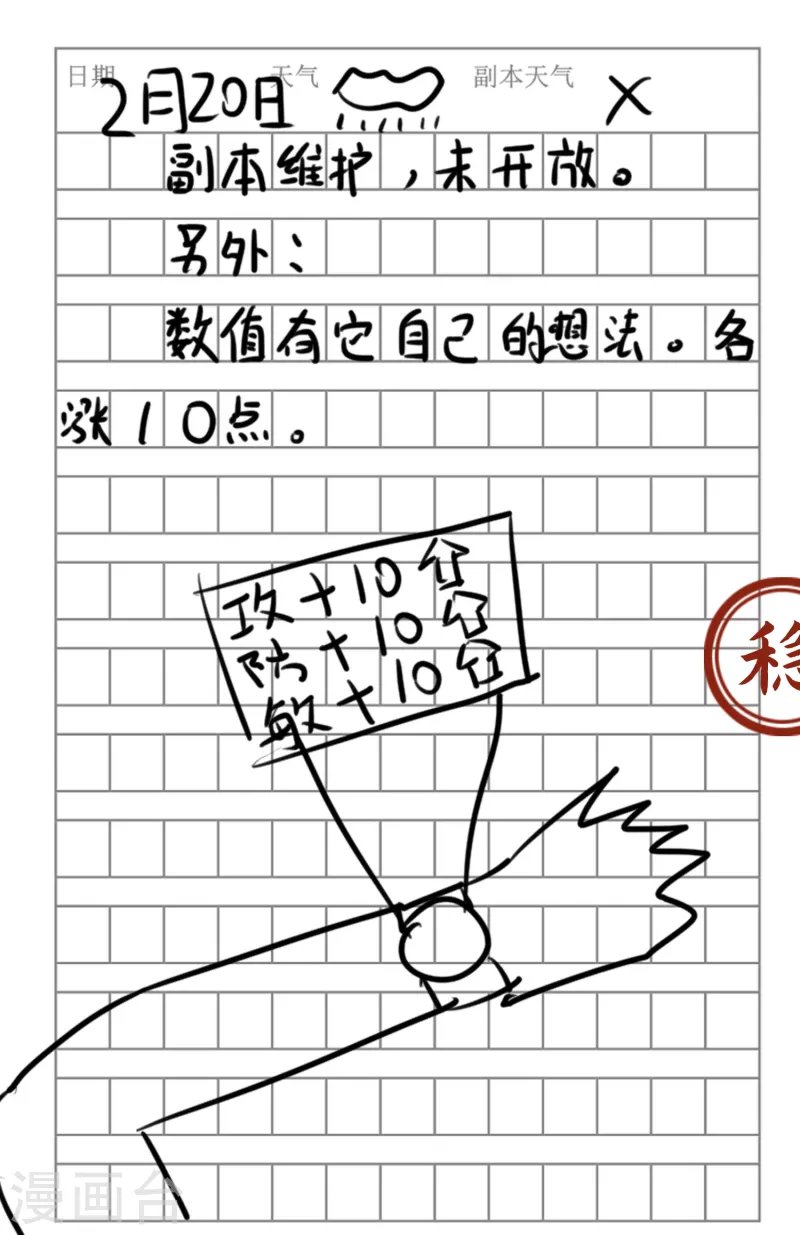 日期 天气 副本天气
2月20日 X
副本维护，未开放。
另外：
数值有它自己的想法。各
涨10点。
攻+10
防+10
敏+10
稳
漫画台